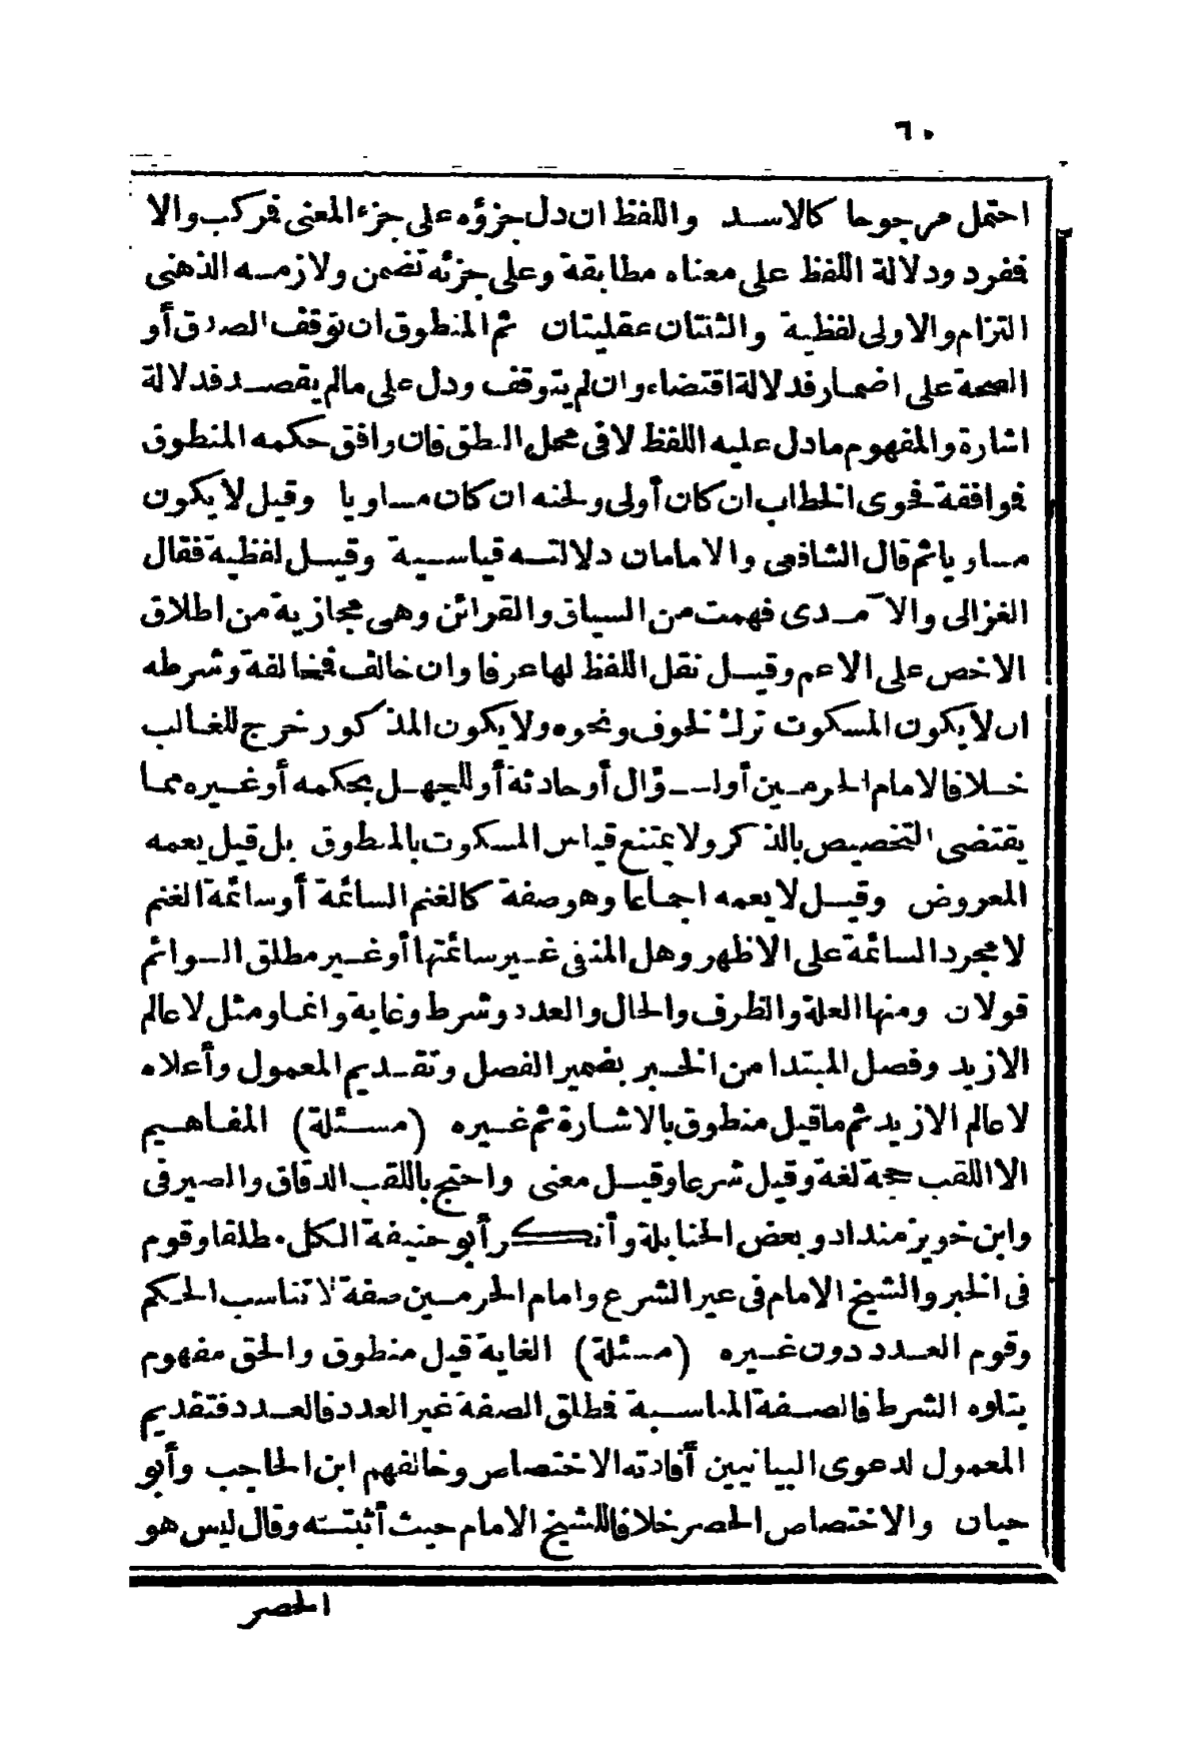 ٦٠
احتمل مرجوحا كالاسد واللفظ ان دل جزؤه على جزء المعنى فركب والا
ففرد ودلالة اللفظ على معناه مطابقة وعلى جزئه تضمن ولازمه الذهنى
التزام والاولى لفظية والثنتان عقليتان ثم المنطوق ان توقف الصدق أو
الصحة على اضمار فدلالة اقتضاء وان لم يتوقف ودل على مالم يقصد فدلالة
اشارة والمفهوم مادل عليه اللفظ لا فى محل النطق فان وافق حكمه المنطوق
فوافقة فحوى الخطاب ان كان أولى ولحنه ان كان مساويا وقيل لا يكون
مساويا ثم قال الشافعى والامامان دلالته قياسية وقيل لفظية فقال
الغزالى والآمدى فهمت من السياق والقرائن وهى مجازية من اطلاق
الاخص على الاعم وقيل نقل اللفظ لها عرفا وان خالف فخالفة وشرطه
ان لا يكون المسكوت ترك لخوف ونحوه ولا يكون المذكور خرج للغالب
خلافا لامام الحرمين أو لسؤال أو حادثة أو للجهل بحكمه أو غيره مما
يقتضى التخصيص بالذكر ولا يمتنع قياس المسكوت بالمنطوق بل قيل يعمه
المعروض وقيل لا يعمه اجماعا وهو صفة كالغنم السائمة أو سائمة الغنم
لا مجرد السائمة على الاظهر وهل المنفى غير سائمتها أو غير مطلق السوائم
قولان ومنها العلة والظرف والحال والعدد وشرط وغاية وانما ومثل لا عالم
الا زيد وفصل المبتدا من الخبر بضمير الفصل وتقديم المعمول وأعلاه
لا عالم الا زيد ثم ماقيل منطوق بالاشارة ثم غيره (مسئلة) المفاهيم
الا اللقب حجة لغة وقيل شرعا وقيل معنى واحتج باللقب الدقاق والصيرفى
وابن خويزمنداد وبعض الحنابلة وأنكر أبو حنيفة الكل مطلقا وقوم
فى الخبر والشيخ الامام فى غير الشرع وامام الحرمين صفة لا تناسب الحكم
وقوم العدد دون غيره (مسئلة) الغاية قيل منطوق والحق مفهوم
يتلوه الشرط فالصفة المناسبة فطلق الصفة غير العدد فالعدد فتقديم
المعمول لدعوى البيانيين أفادته الاختصاص وخالفهم ابن الحاجب وأبو
حيان والاختصاص الحصر خلافا للشيخ الامام حيث أثبتته وقال ليس هو
الحصر